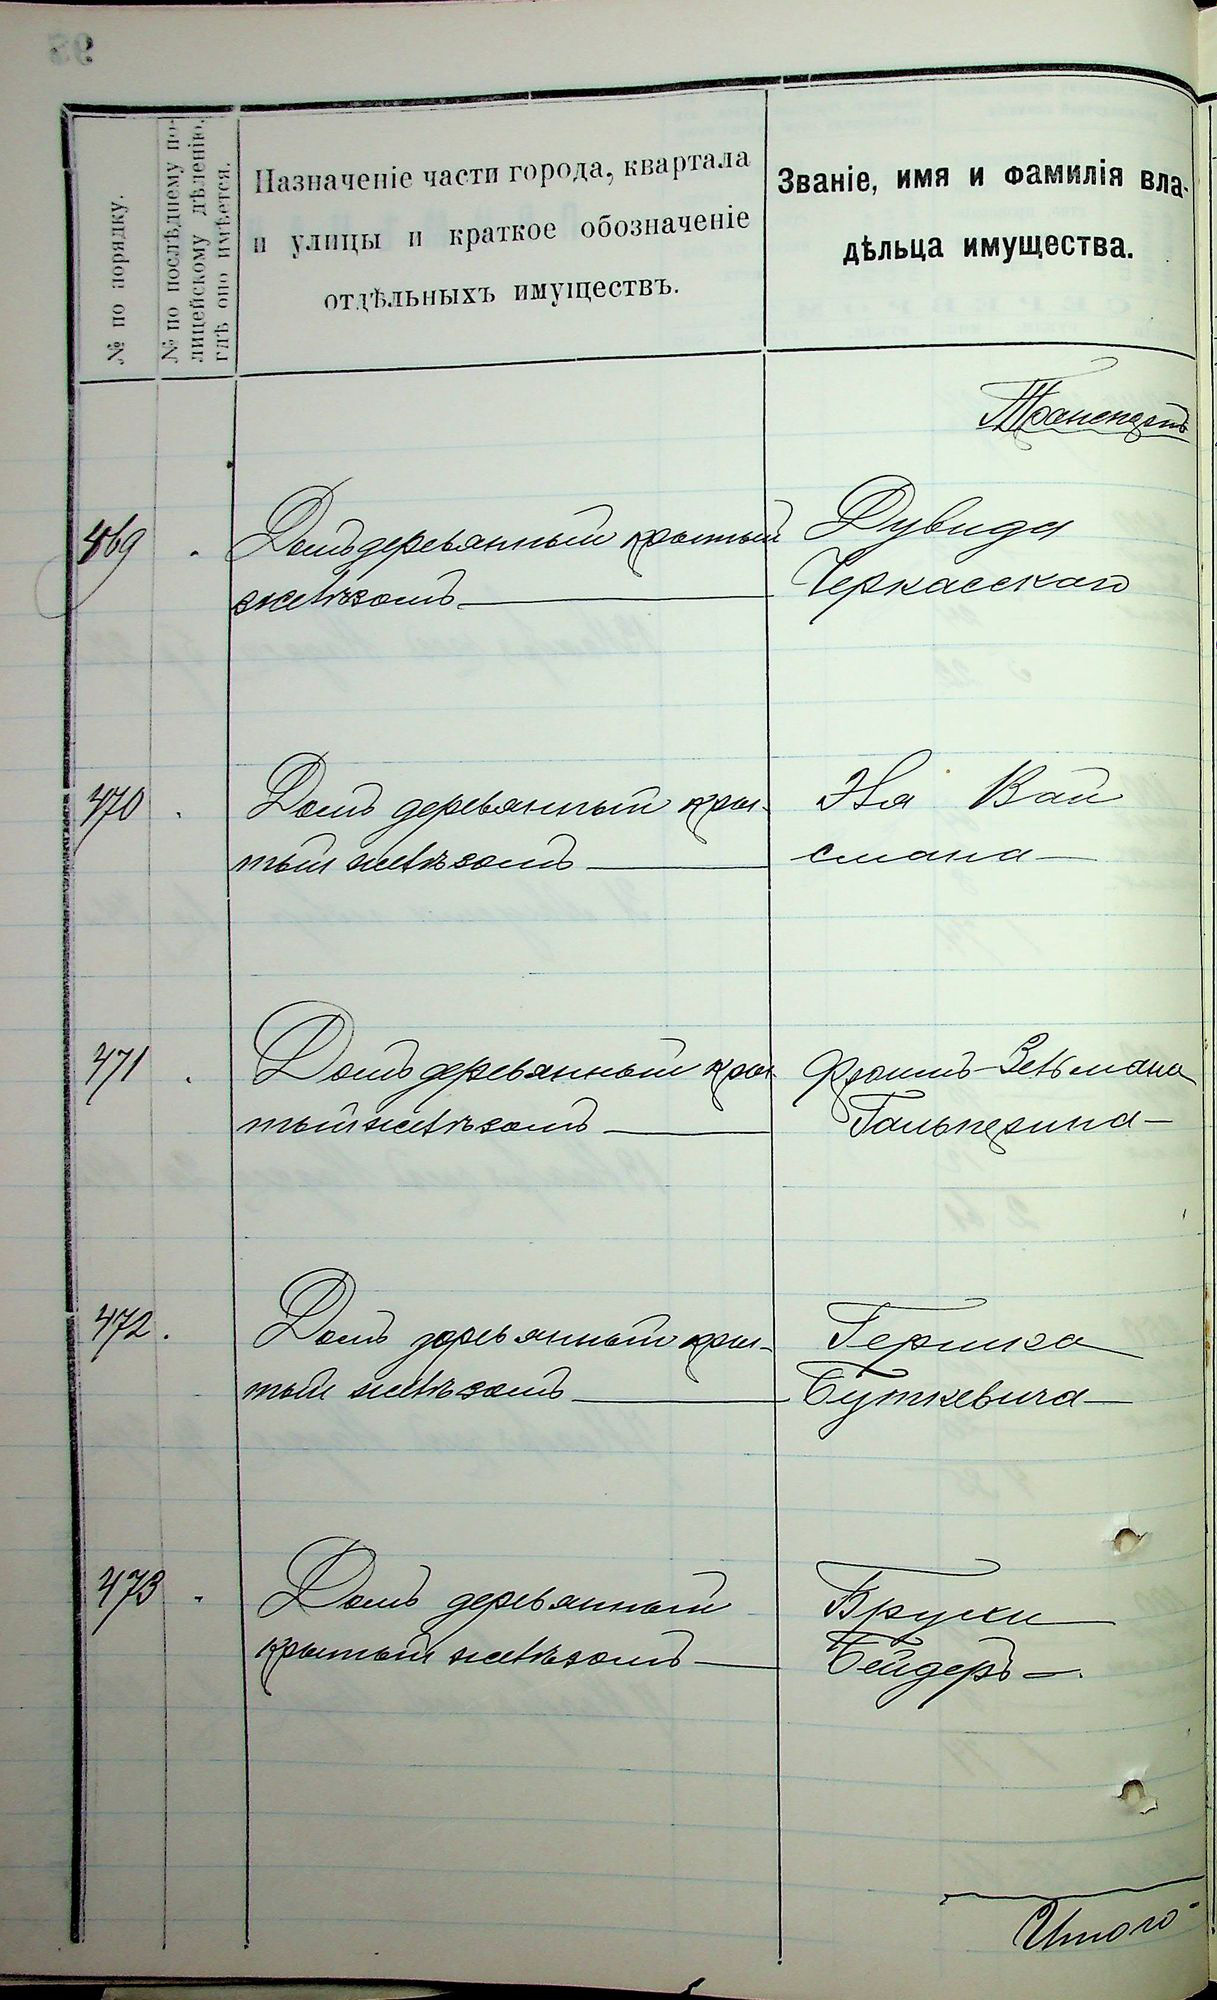 № по порядку.
№ по послѣднему по-
лицейскому дѣленію,
гдѣ оно имѣется.
Назначеніе части города, квартала
и улицы и краткое обозначеніе
отдѣльныхъ имуществъ.
Званіе, имя и фамилія вла-
дѣльца имущества.
Транспортъ
469 Домъ деревянный крытый
желѣзомъ
Дувида
Черкасскаго
470 Домъ деревянный кры-
тый желѣзомъ
Эля Вай
смана
471 Домъ деревянный кры
тый желѣзомъ
Зельмана
Гальперина
472. Домъ деревянный кры-
тый желѣзомъ
Гершка
Буткевича
473 Домъ деревянный
крытый желѣзомъ
Бейдеръ
Итого